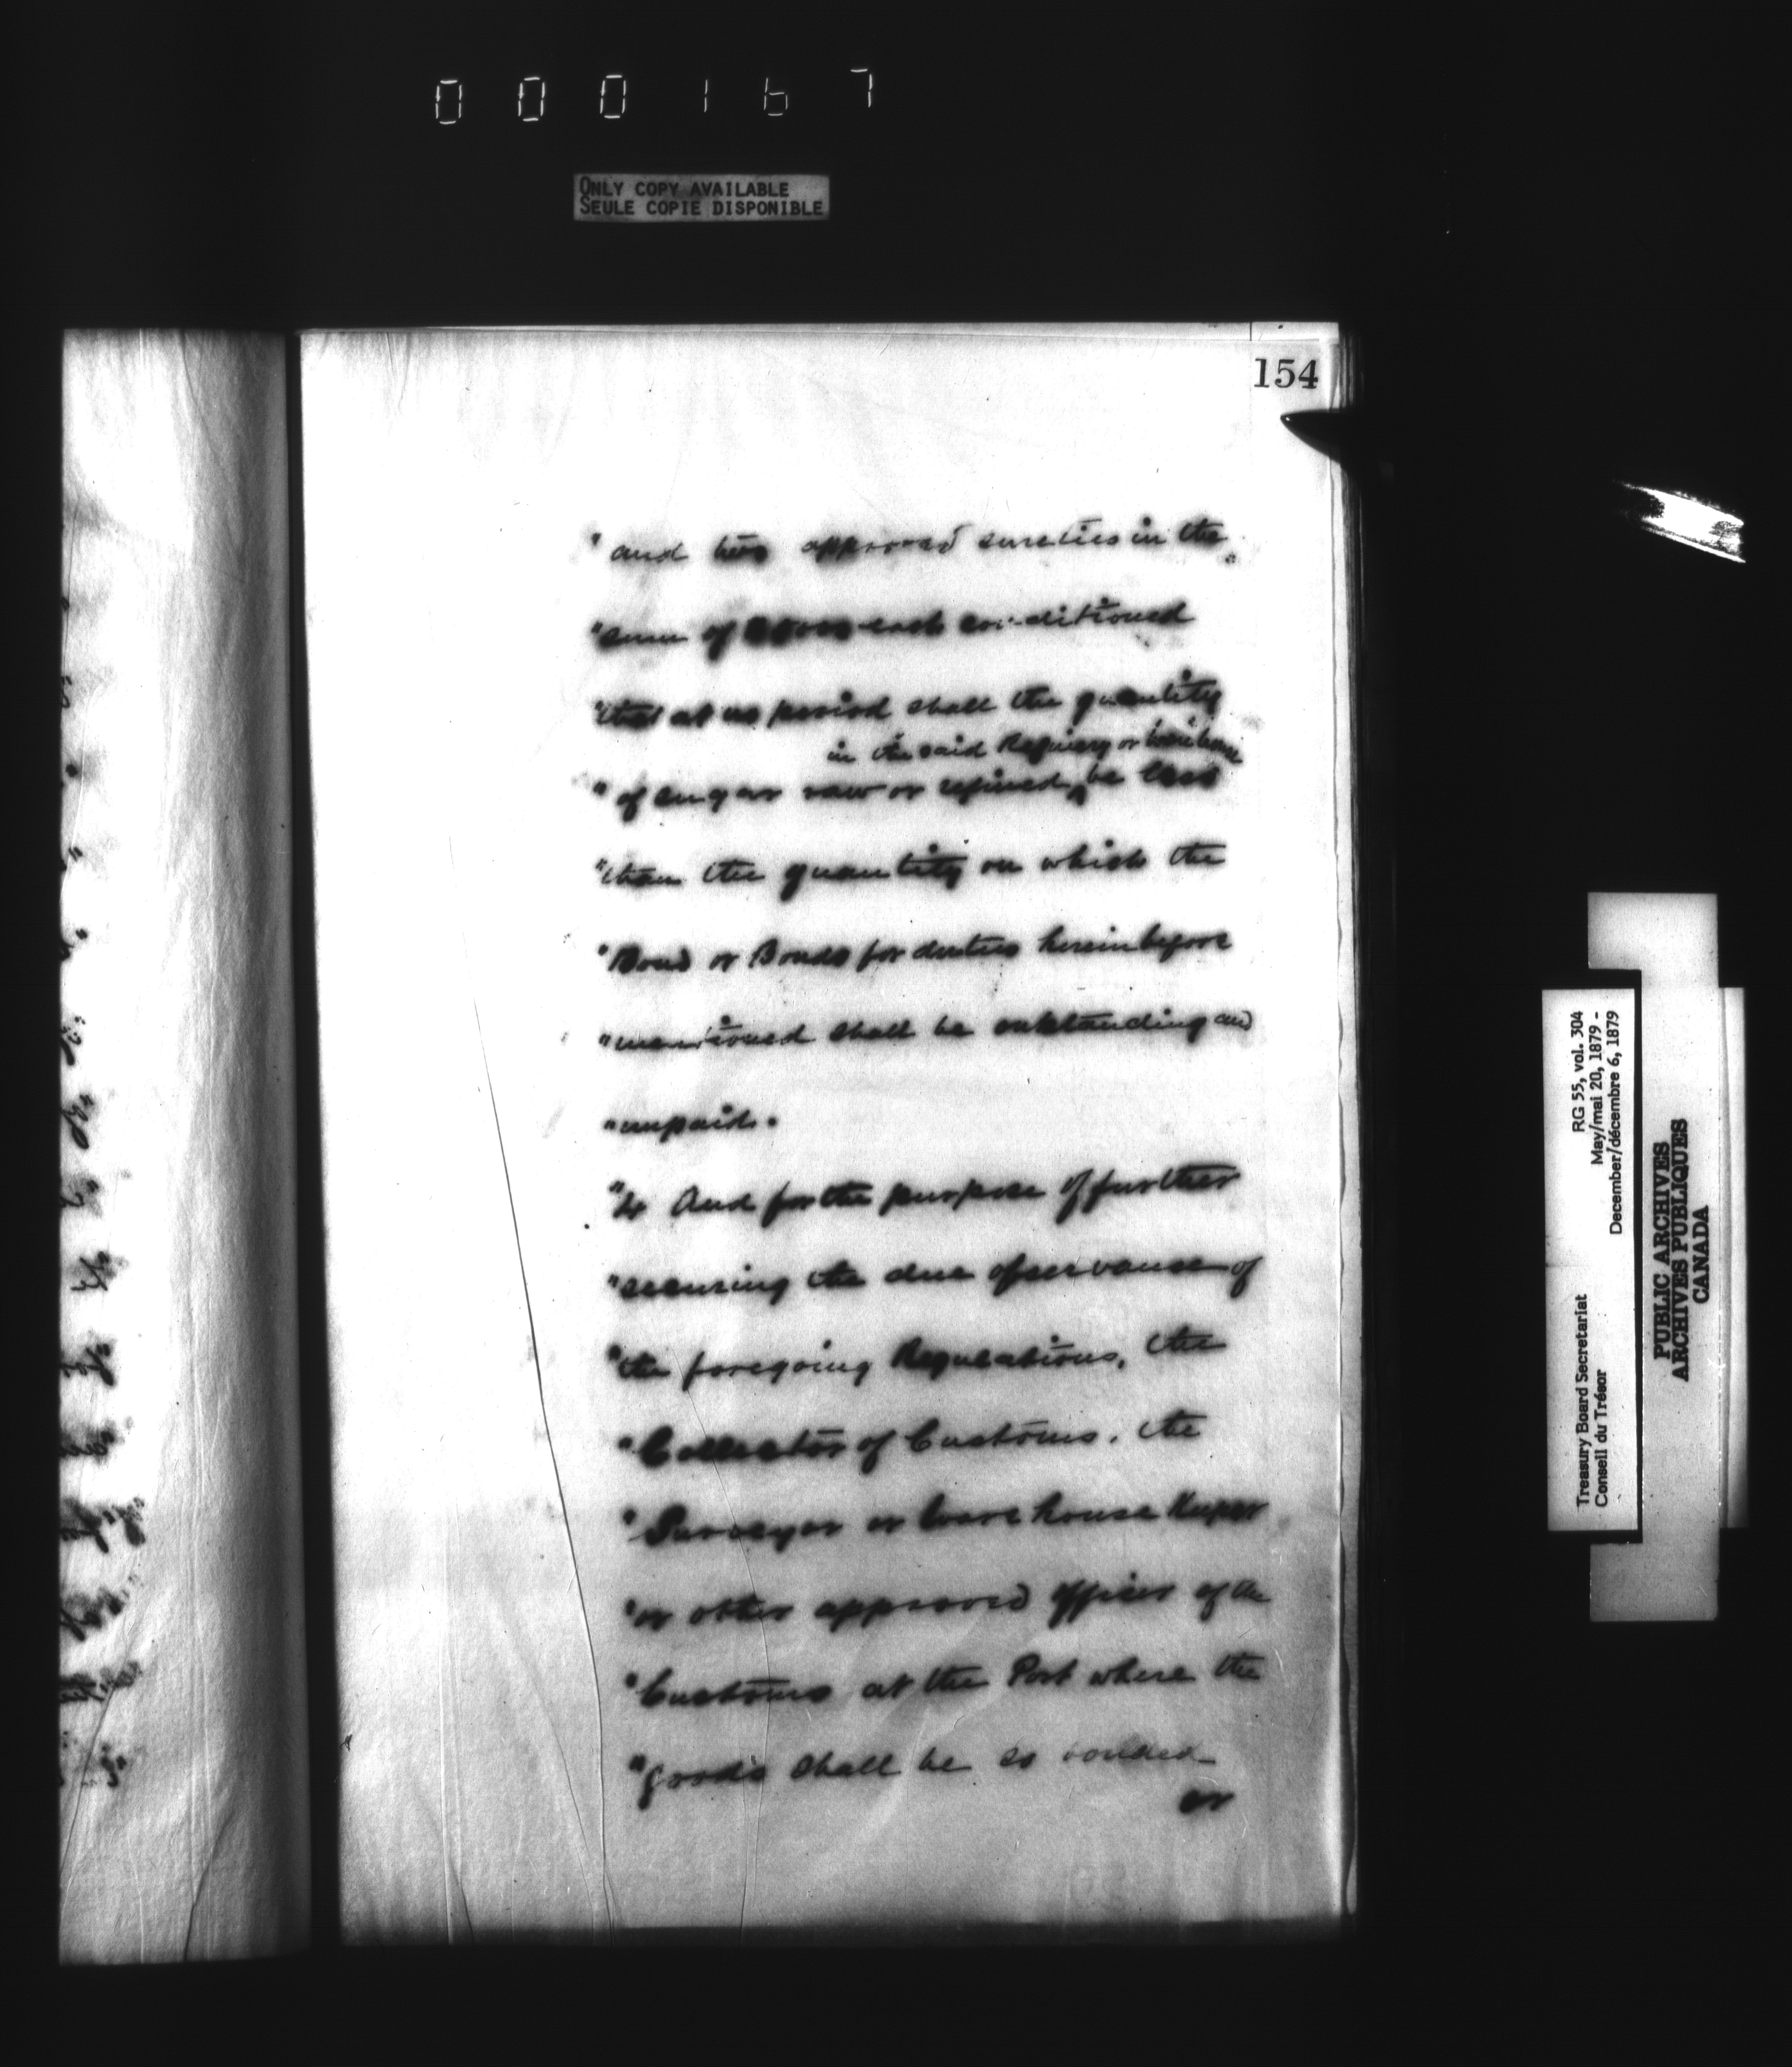 000167
ONLY COPY AVAILABLE
SEULE COPIE DISPONIBLE
154
"and two approved sureties in the
"sum of each conditioned
"that at no period shall the quantity
in the said Refinery or warehouse
"of sugar raw or refined ^ be less
"than the quantity on which the
"Bond or Bonds for duties hereinbefore
"mentioned shall be outstanding and
"unpaid.
"4 And for the purpose of further
"securing the due observance of
"the foregoing Regulations, the
"Collector of Customs, the
"Surveyor or Warehouse Keeper
"or other approved officer of the
"Customs at the Port where the
"goods shall be so bonded
or
Treasury Board Secretariat RG 55, vol. 304
Conseil du Trésor May/mai 20, 1879 -
December/décembre 6, 1879
PUBLIC ARCHIVES
ARCHIVES PUBLIQUES
CANADA